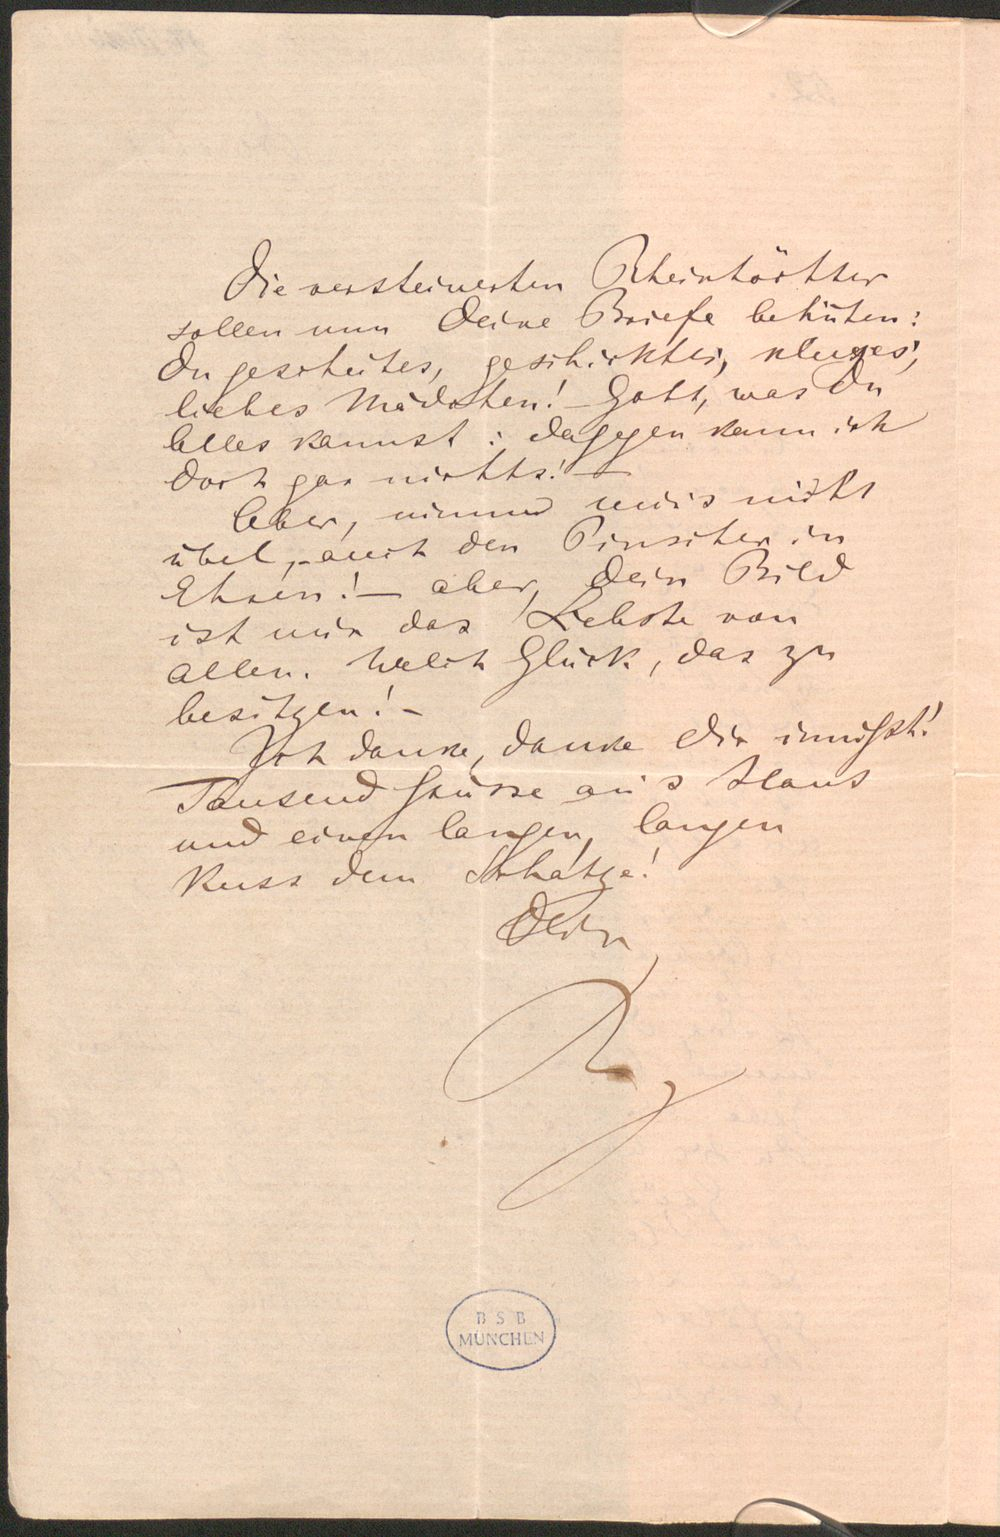 Die versteinerten Rheintöchter
sollen nun Deine Briefe behüten:
Du gescheites, geschicktes, kluges,
liebes Mädchen! – Gott, was Du
Alles kannst: dagegen kann ich
doch gar nichts! –
Aber, nimm mir's nicht
übel, – auch den Pinscher in
Ehren! – aber, Dein Bild
ist mir das Liebste von
allen. Welch Glück, das zu
besitzen! –
Ich danke, danke Dir innigst!
Tausend Grüsse an's Haus
und einen langen, langen
Kuss dem Schatze!
Dein
R
BSB
MÜNCHEN